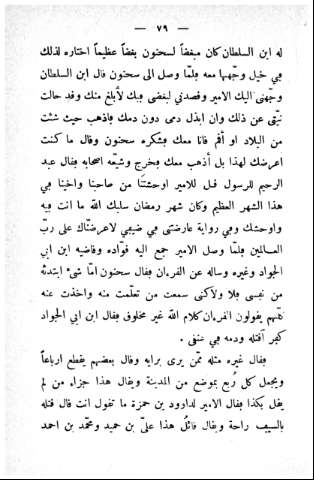 — ٧٩ —
له ابن السلطان كان مبغضاً لسحنون بغضاً عظيماً اختاره لذلك
في خيل وجّهها معه فلمّا وصل الى سحنون قال ابن السلطان
وجّهنى اليك الامير وقصدني لبغضى فيك لأبلغ منك وقد حالت
نيّتى عن ذلك وان ابذل دمى دون دمك فاذهب حيث شئت
من البلاد او اقم فانا معك فشكره سحنون وقال ما كنت
اعرضك لهذا بل أذهب معك فخرج وشيّعه اصحابه فقال عبد
الرحيم للرسول قل للامير اوحشتنا من صاحبنا واخينا في
هذا الشهر العظيم وكان شهر رمضان سلبك الله ما انت فيه
واوحشك وفي رواية عارضتى في ضيفى لاعرضنّاك على ربّ
العالمين فلمّا وصل الامير جمع اليه قوّاده وقاضيه ابن ابي
الجواد وغيره وساله عن القرءان فقال سحنون امّا شىء ابتدئه
من نفسى فلا ولاكنى سمعت من تعلّمت منه واخذت عنه
كلّهم يقولون القرءان كلام الله غير مخلوق فقال ابن ابي الجواد
كفر اقتله ودمه في عنقى .
فقال غيره مثله ممّن يرى برايه وقال بعضهم يقطع ارباعاً
ويجعل كل رُبع بموضع من المدينة ويقال هذا جزاء من لم
يقل بكذا فقال الامير لداوود بن حمزة ما تقول انت قال قتله
بالسيف راحة ويقال قائلُ هذا علىّ بن حميد ومحمّد بن احمد